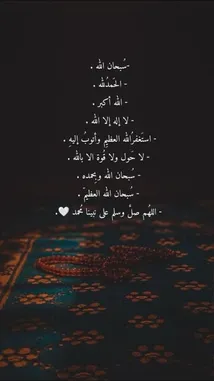 -سُبحان الله .
- الحَمدُلله .
- الله أكبر .
- لا إله إلا الله .
- استَغفرُالله العظيمٍ وأتوبُ إليهِ .
- لا حَول ولا قُوة الا بالله .
- سُبحان الله وبحمده .
- سُبحان الله العظيمَ .
- اللهُم صلَّ وسلم على نبينا مُحمد 🤍.